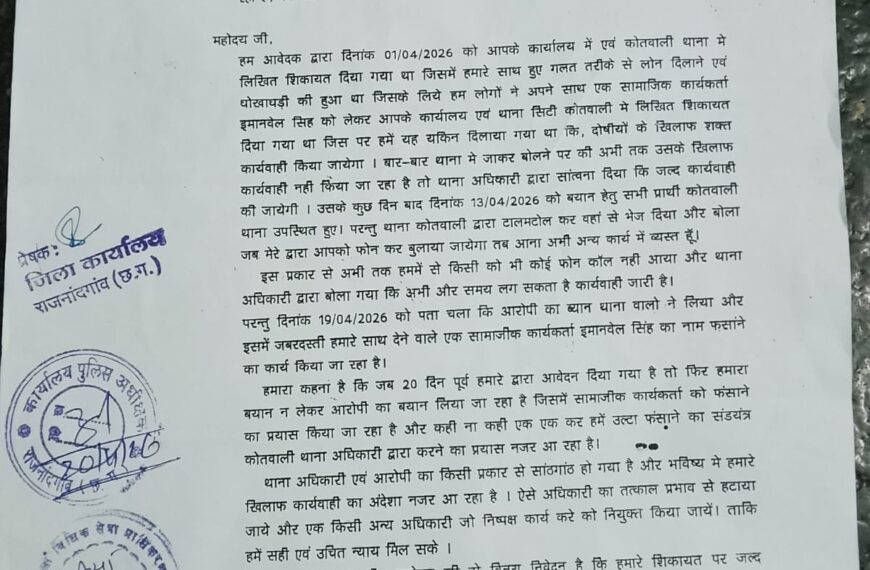 महोदय जी,
हम आवेदक द्वारा दिनांक 01/04/2026 को आपके कार्यालय में एवं कोतवाली थाना मे
लिखित शिकायत दिया गया था जिसमें हमारे साथ हुए गलत तरीके से लोन दिलाने एवं
धोखाधड़ी की हुआ था जिसके लिये हम लोगों ने अपने साथ एक सामाजिक कार्यकर्ता
इमानवेल सिह को लेकर आपके कार्यालय एवं थाना सिटी कोतवाली मे लिखित शिकायत
दिया गया था जिस पर हमें यह यकिन दिलाया गया था कि, दोषीयों के खिलाफ शक्त
कार्यवाही किया जायेगा । बार–बार थाना मे जाकर बोलने पर की अभी तक उसके खिलाफ
कार्यवाही नही किया जा रहा है तो थाना अधिकारी द्वारा सांत्वना दिया कि जल्द कार्यवाही
की जायेगी । उसके कुछ दिन बाद दिनांक 13/04/2026 को बयान हेतु सभी प्रार्थी कोतवाली
थाना उपस्थित हुए। परन्तु थाना कोतवाली द्वारा टालमटोल कर वहां से भेज दिया और बोला
जब मेरे द्वारा आपको फोन कर बुलाया जायेगा तब आना अभी अन्य कार्य में व्यस्त हूँ।
इस प्रकार से अभी तक हममें से किसी को भी कोई फोन कॉल नही आया और थाना
अधिकारी द्वारा बोला गया कि अभी और समय लग सकता है कार्यवाही जारी है।
परन्तु दिनांक 19/04/2026 को पता चला कि आरोपी का ब्यान थाना वालो ने लिया और
इसमें जबरदस्ती हमारे साथ देने वाले एक सामाजीक कार्यकर्ता इमानवेल सिंह का नाम फसांने
का कार्य किया जा रहा है।
हमारा कहना है कि जब 20 दिन पूर्व हमारे द्वारा आवेदन दिया गया है तो फिर हमारा
बयान न लेकर आरोपी का बयान लिया जा रहा है जिसमें सामाजीक कार्यकर्ता को फंसाने
का प्रयास किया जा रहा है और कही ना कही एक एक कर हमें उल्टा फंसाने का संडयंत्र
कोतवाली थाना अधिकारी द्वारा करने का प्रयास नजर आ रहा है।
थाना अधिकारी एवं आरोपी का किसी प्रकार से सांठगांठ हो गया है और भविष्य मे हमारे
खिलाफ कार्यवाही का अंदेशा नजर आ रहा है । ऐसे अधिकारी का तत्काल प्रभाव से हटाया
जाये और एक किसी अन्य अधिकारी जो निष्पक्ष कार्य करे को नियुक्त किया जायें। ताकि
हमें सही एवं उचित न्याय मिल सके ।
निवेदन है कि हमारे शिकायत पर जल्द
प्रेषक:
जिला कार्यालय
राजनांदगांव (छ.ग.)
कार्यालय पुलिस अधीक्षक
राजनांदगांव (छ.ग.)
विधिक सेवा प्राधिकरण